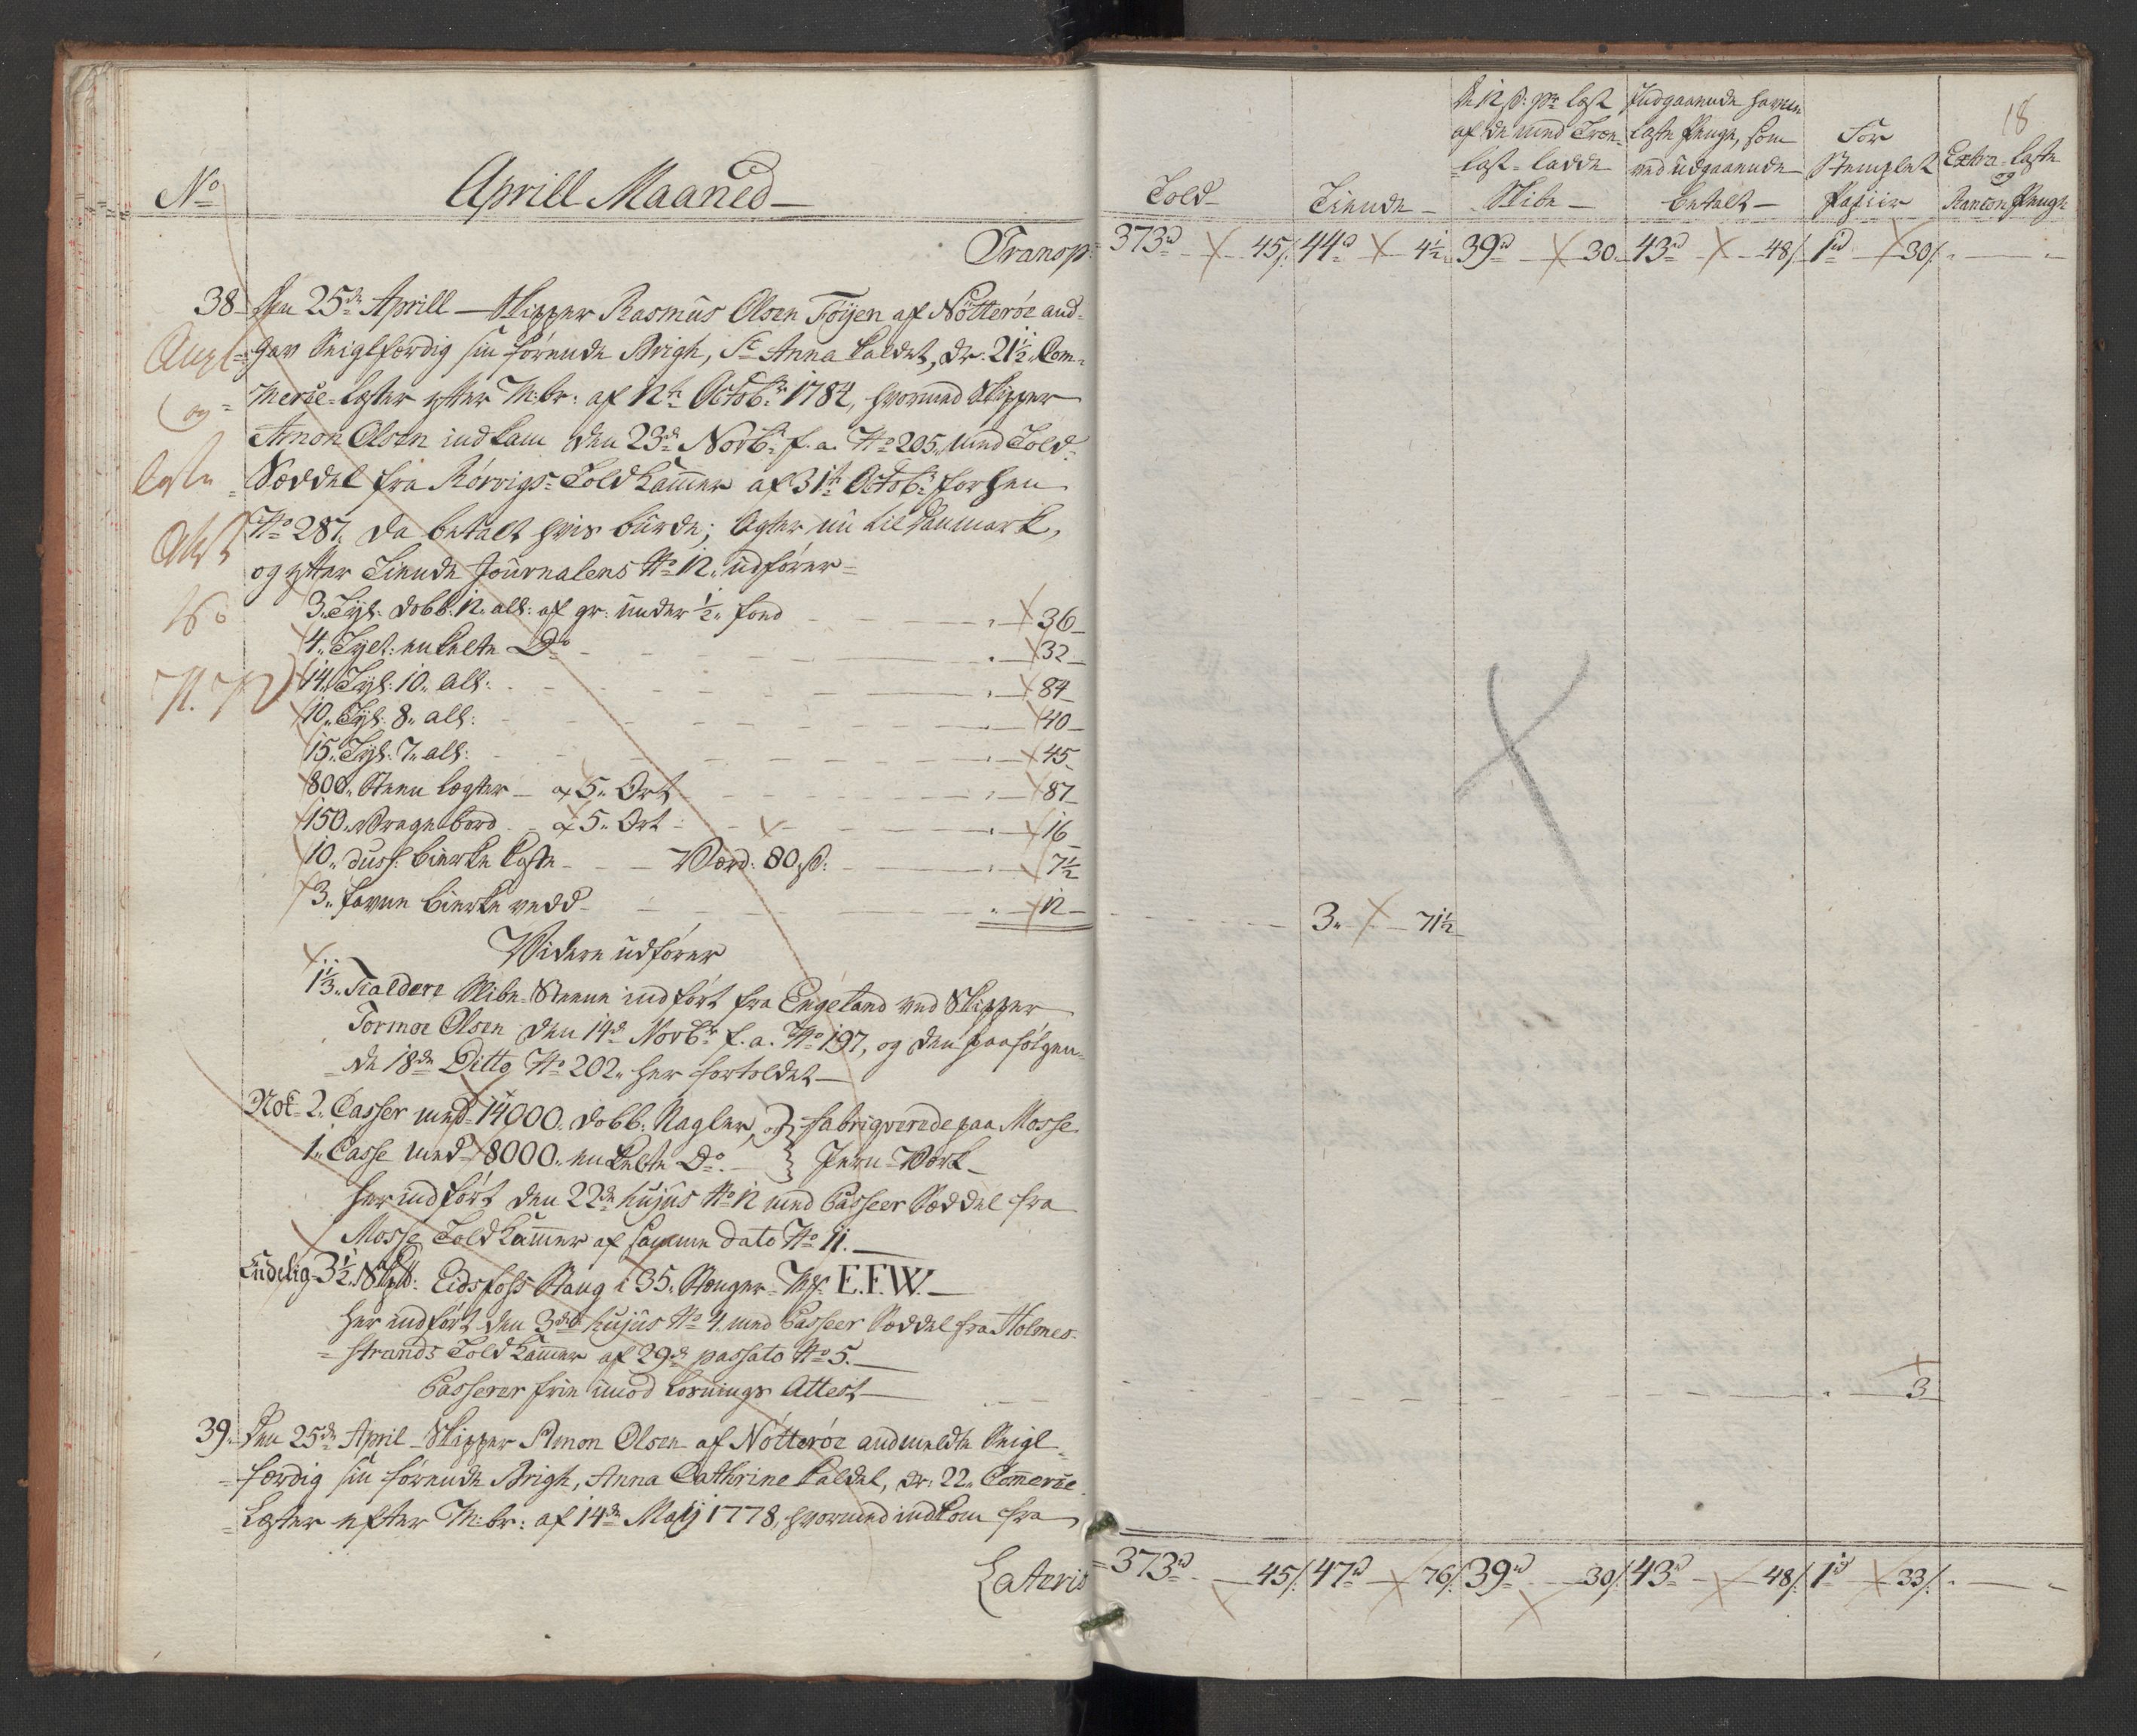 No
Aprill Maaned
Transp:
38. Den 25de Aprill Skipper Rasmus Olsen Föÿen af Nötteröe and-
gav Seiglfærdig sin förende Brigh, St Anna kaldet, dr. 21½ Com-
merce-Læster efter M:br: af 12te Octobr 1784, hvormed Skipper
Amon Olsen indkam den 23de Novbr f. a. No 205, med Told-
Sæddel fra Rörvigs Told Kammer af 31te Octobr forhen
No 287, da betalt hvis burde; Agter nu til Danmark,
og efter Tiende Journalens No 12. udförer
3. Tylt. dobb: 12. all: af gr: under ½ food 36
4. Tylt: enkelte Do 32
14. Tylt: 10. all: 84
10. Tylt: 8. all: 40
15. Tylt: 7. all: 45
800. Steen Lægter a 5. Ort 87
150. Vragebord a 5. Ort 16
10. duss: Birke Koste Værd: 80 s: 7½
3. favne Birke vedd 12
Videre udförer
1⅓. Tialdere Slibe-Steene indfört fra Engeland ved Skipper
Tormoe Olsen den 14de Novbr f. a. No 197, og den paafölgen-
de 18de Ditto No 202. her fortoldet
Nok 2. Casser med 14000. dobb: Nagler, og fabriqverede paa Mosse
1. Casse med 8000. enkelte Do. Jern-Værk
her indfört den 22de hujus No 12 med Passeer Sæddel fra
Mosse Told Kammer af samme Dato No 11.
Endelig 3½ Skpd: Eidsfoss Stang i 35. Stænger M: E.F.W.
her indfört den 3die hujus No 4. med Passeer Sæddel fra Holmes-
strands Told Kammer af 29de passato No 5.
Passerer frie imod Losnings Attest
39. Den 25de April Skipper Amon Olsen af Nötteröe andmeldte Seigl-
færdig sin förende Brigh, Anna Cathrine kaldet, dr: 22. Commerce
Læster efter M:br: af 14de Maij 1778, hvormed indkom fra
Lateris
og
Læste
No
18
Told
Tiende
De 12 s: pr Læst af de med Træ-Last-ladde Skibe
Indgaaende havne Læste Penge, som ved udgaaende betalt
For Stemplet Papiir
Extra-Læste og Rantzon Penge
373 45 44 4½ 39 30 43 48 1 30
3. 71½
3
373 45 47 76 39 30 43 48 1 33